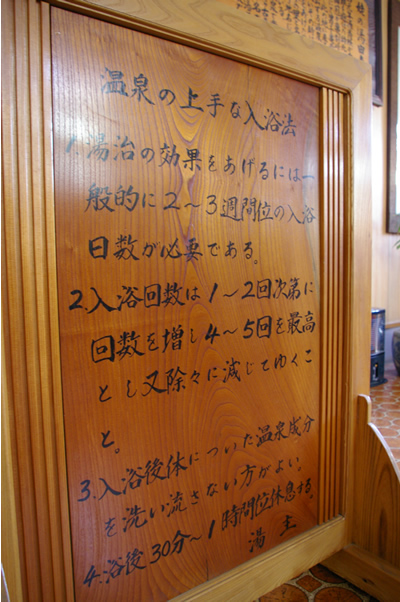 温泉の上手な入浴法
1.湯治の効果をあげるには一
般的に2〜3週間位の入浴
日数が必要である。
2.入浴回数は1〜2回次第に
回数を増し4〜5回を最高
とし又除々に減じてゆくこ
と。
3.入浴後体についた温泉成分
を洗い流さない方がよい。
4.浴後30分〜1時間位休息する。
湯主